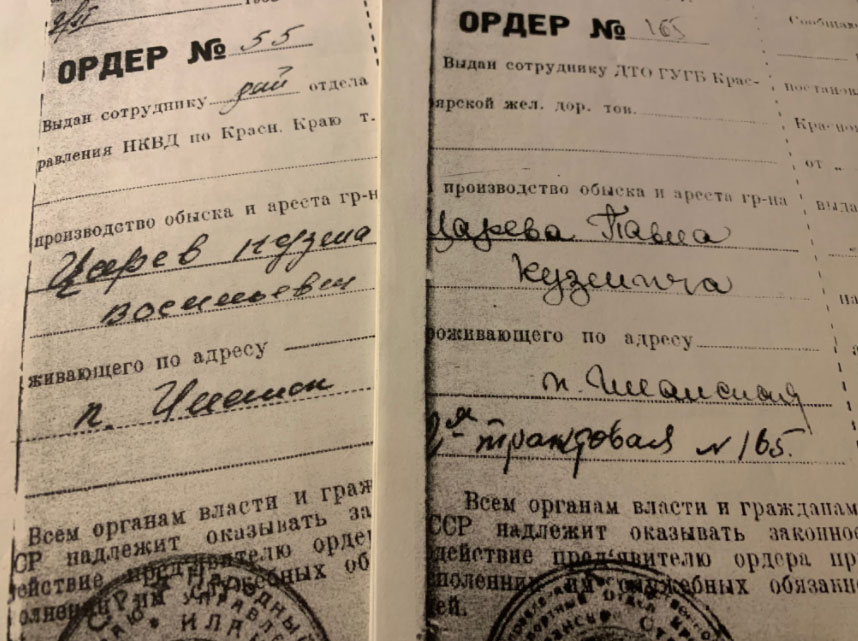 ОРДЕР № 55
Выдан сотруднику рай отдела
равления НКВД по Красн. Краю т.
производство обыска и ареста гр-н
Царев Кузма
Восильевич
живающего по адресу
п. Иланск
Всем органам власти и граж
СР надлежит оказывать за
действие предъявителю орде
олнении им служебных об
ОРДЕР № 165
Сообщаю
Выдан сотруднику ДТО ГУГБ Крас-
ярской жел. дор. тов.
постанов
Красно
от „
производство обыска и ареста гр-на
выда
Царева Павла
Кузмича
на
роживающего по адресу
п. Иланская
2я трактовая N 165.
Всем органам власти и гражданам
ССР надлежит оказывать законное
действие предъявителю ордера пр
полнении им служебных обязанно
ей.